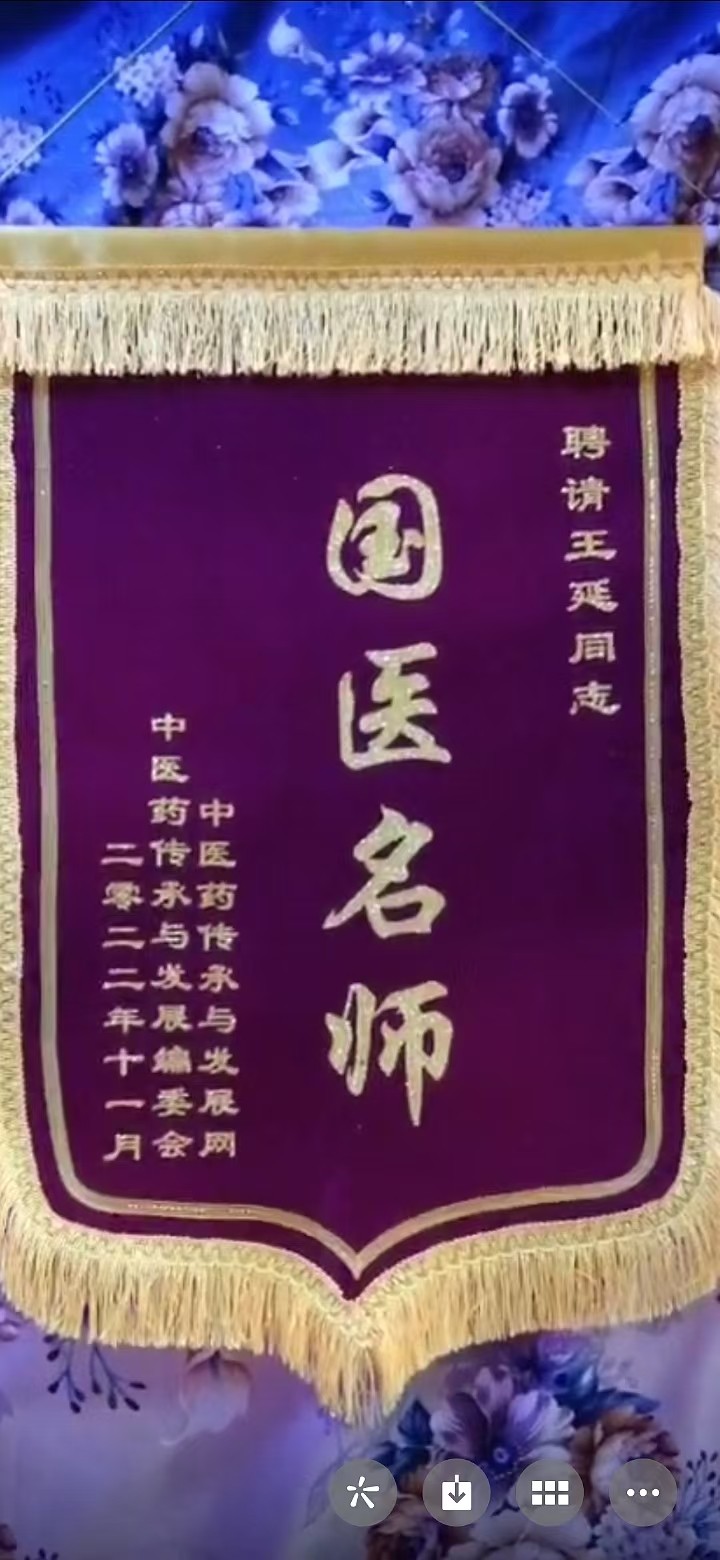 聘请王延同志
国医名师
中医药传承与发展网
中医药传承与发展编委会
二零二二年十一月